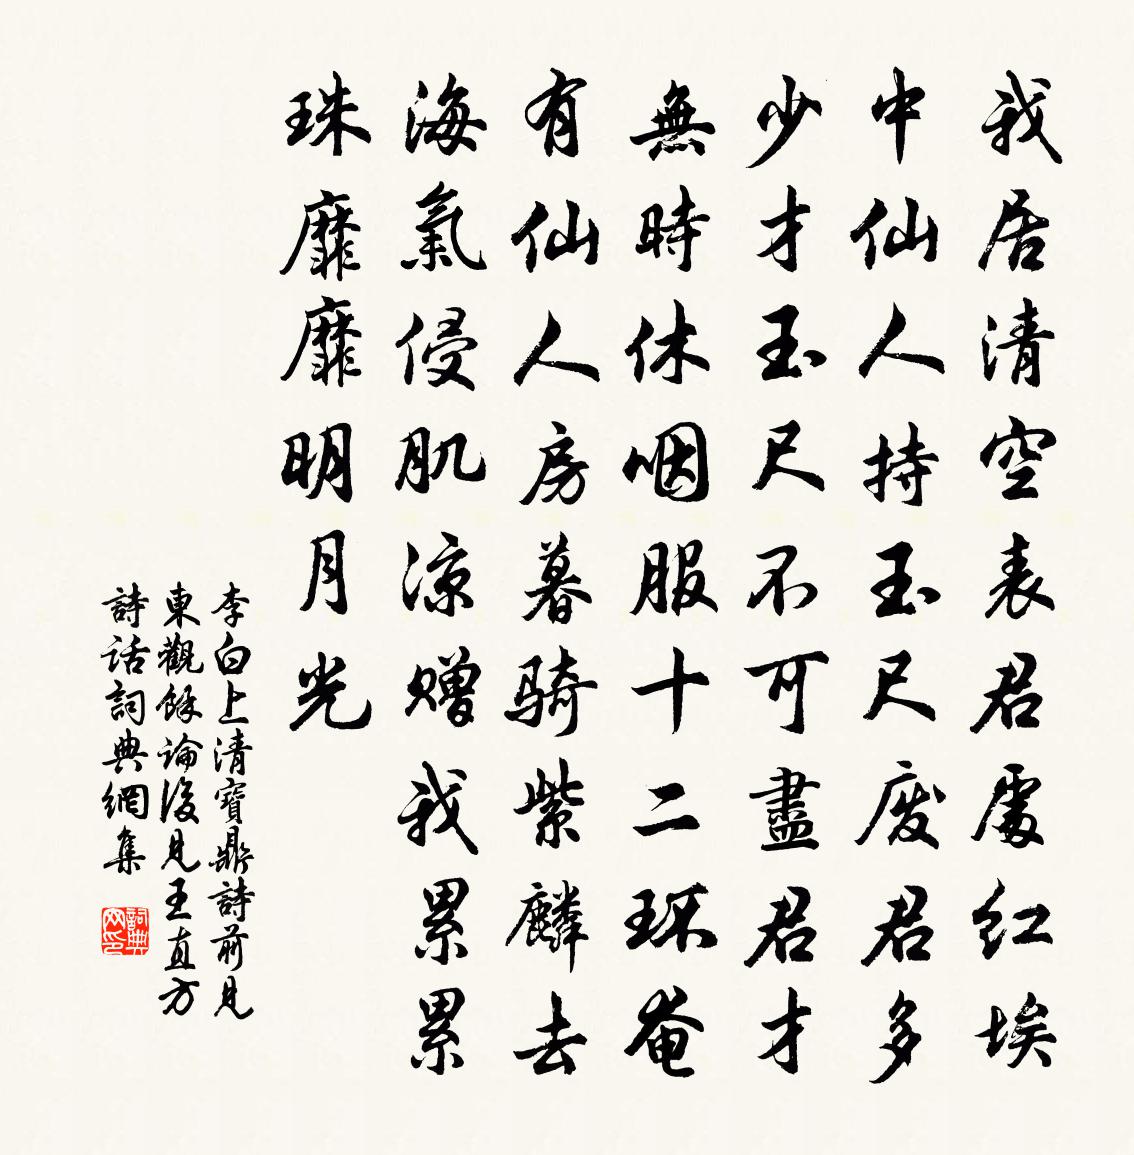 我居清空表君處紅埃
中仙人持玉尺废君多
少才玉尺不可盡君才
無時休咽服十二环奄
有仙人房暮骑紫麟去
海氣侵肌涼赠我累累
珠靡靡明月光
李白上清寶鼎詩前見
東觀餘論後見王直方
詩話詞典網集
詞典网印